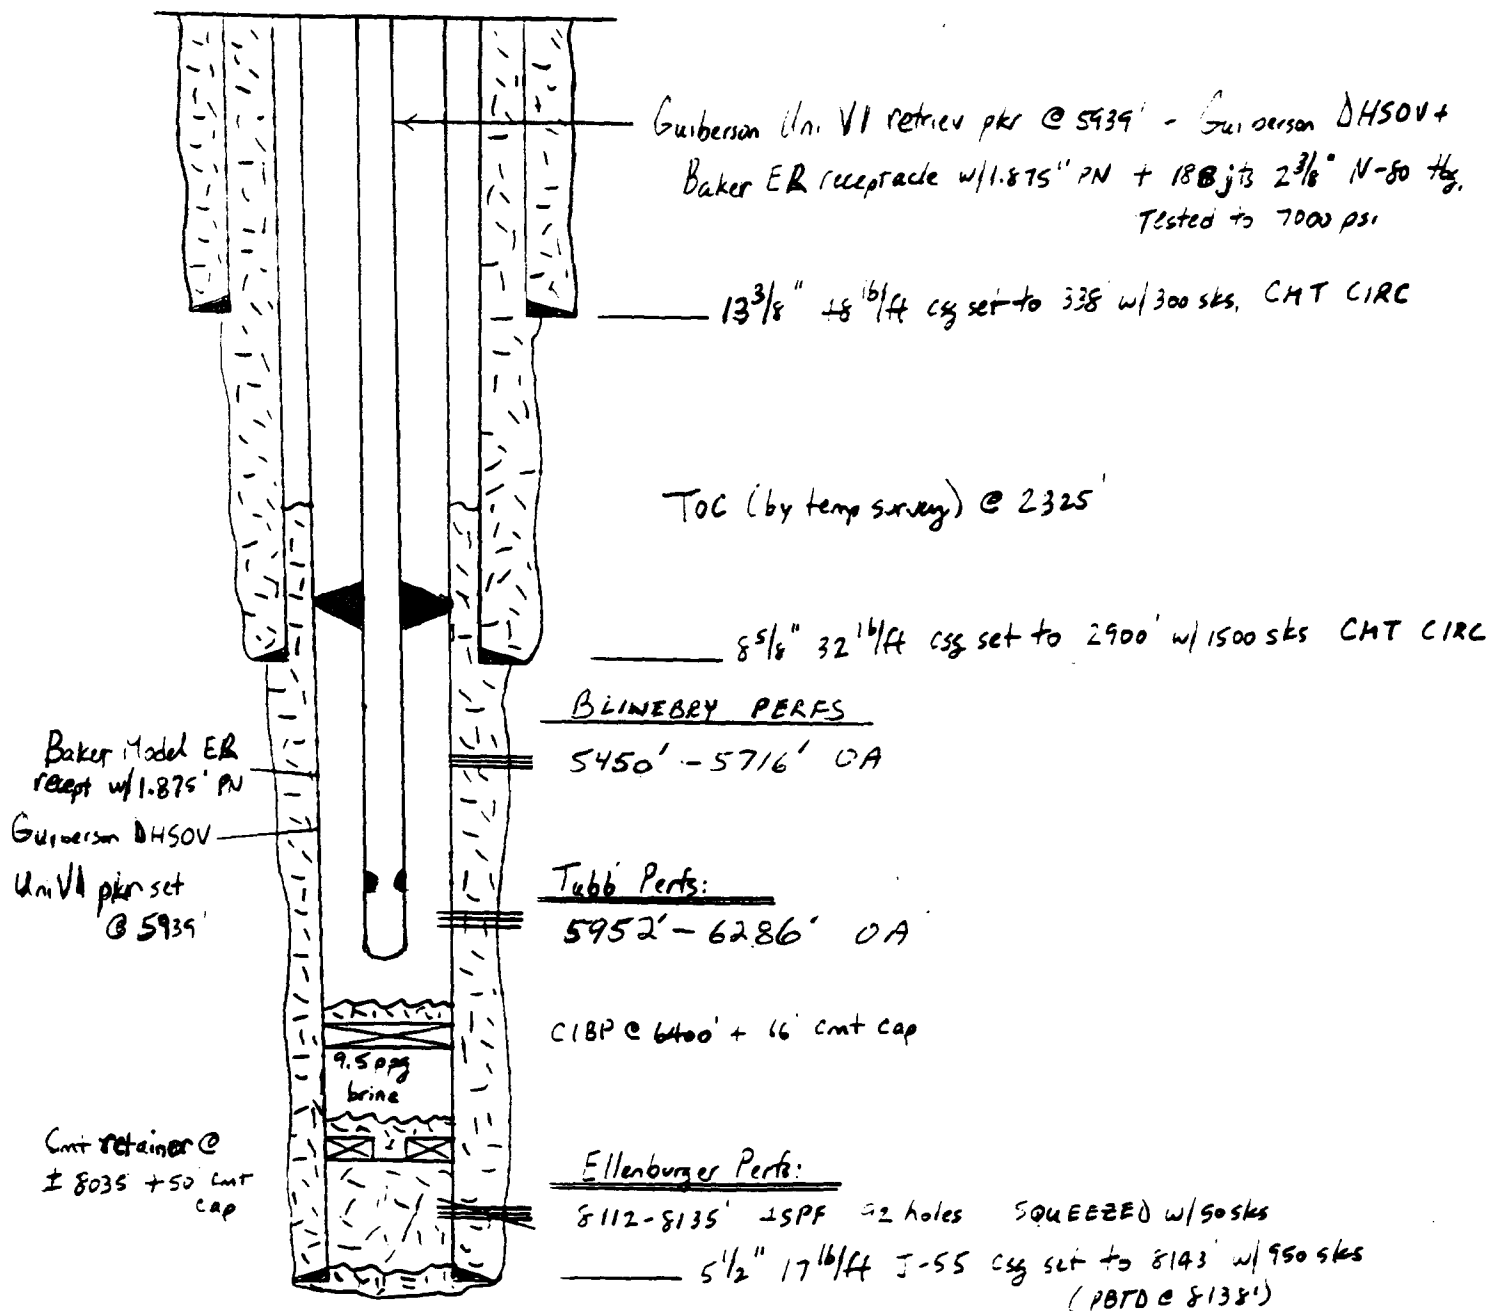 Guiberson Uni VI retriev pkr @ 5939' - Guiberson DHSOV +
Baker ER receptacle w/1.875" PN + 188 jts 2 3/8" N-80 tbg.
Tested to 7000 psi
13 3/8" 48 lb/ft csg set to 338' w/300 sks, CMT CIRC
TOC (by temp survey) @ 2325'
8 5/8" 32 lb/ft csg set to 2900' w/1500 sks CMT CIRC
BLINEBRY PERFS
5450' - 5716' OA
Baker Model ER
recept w/1.875' PN
Guiberson DHSOV
Uni VI pkr set
@ 5939'
Tubb Perfs:
5952' - 6286' OA
CIBP @ 6400' + 16' cmt cap
9.5 ppg
brine
Cmt retainer @
± 8035 + 50 cmt
cap
Ellenburger Perfs:
8112-8135' SPF holes SQUEEZED w/50 sks
5 1/2" 17 lb/ft J-55 csg set to 8143' w/950 sks
(PBTD @ 8138')